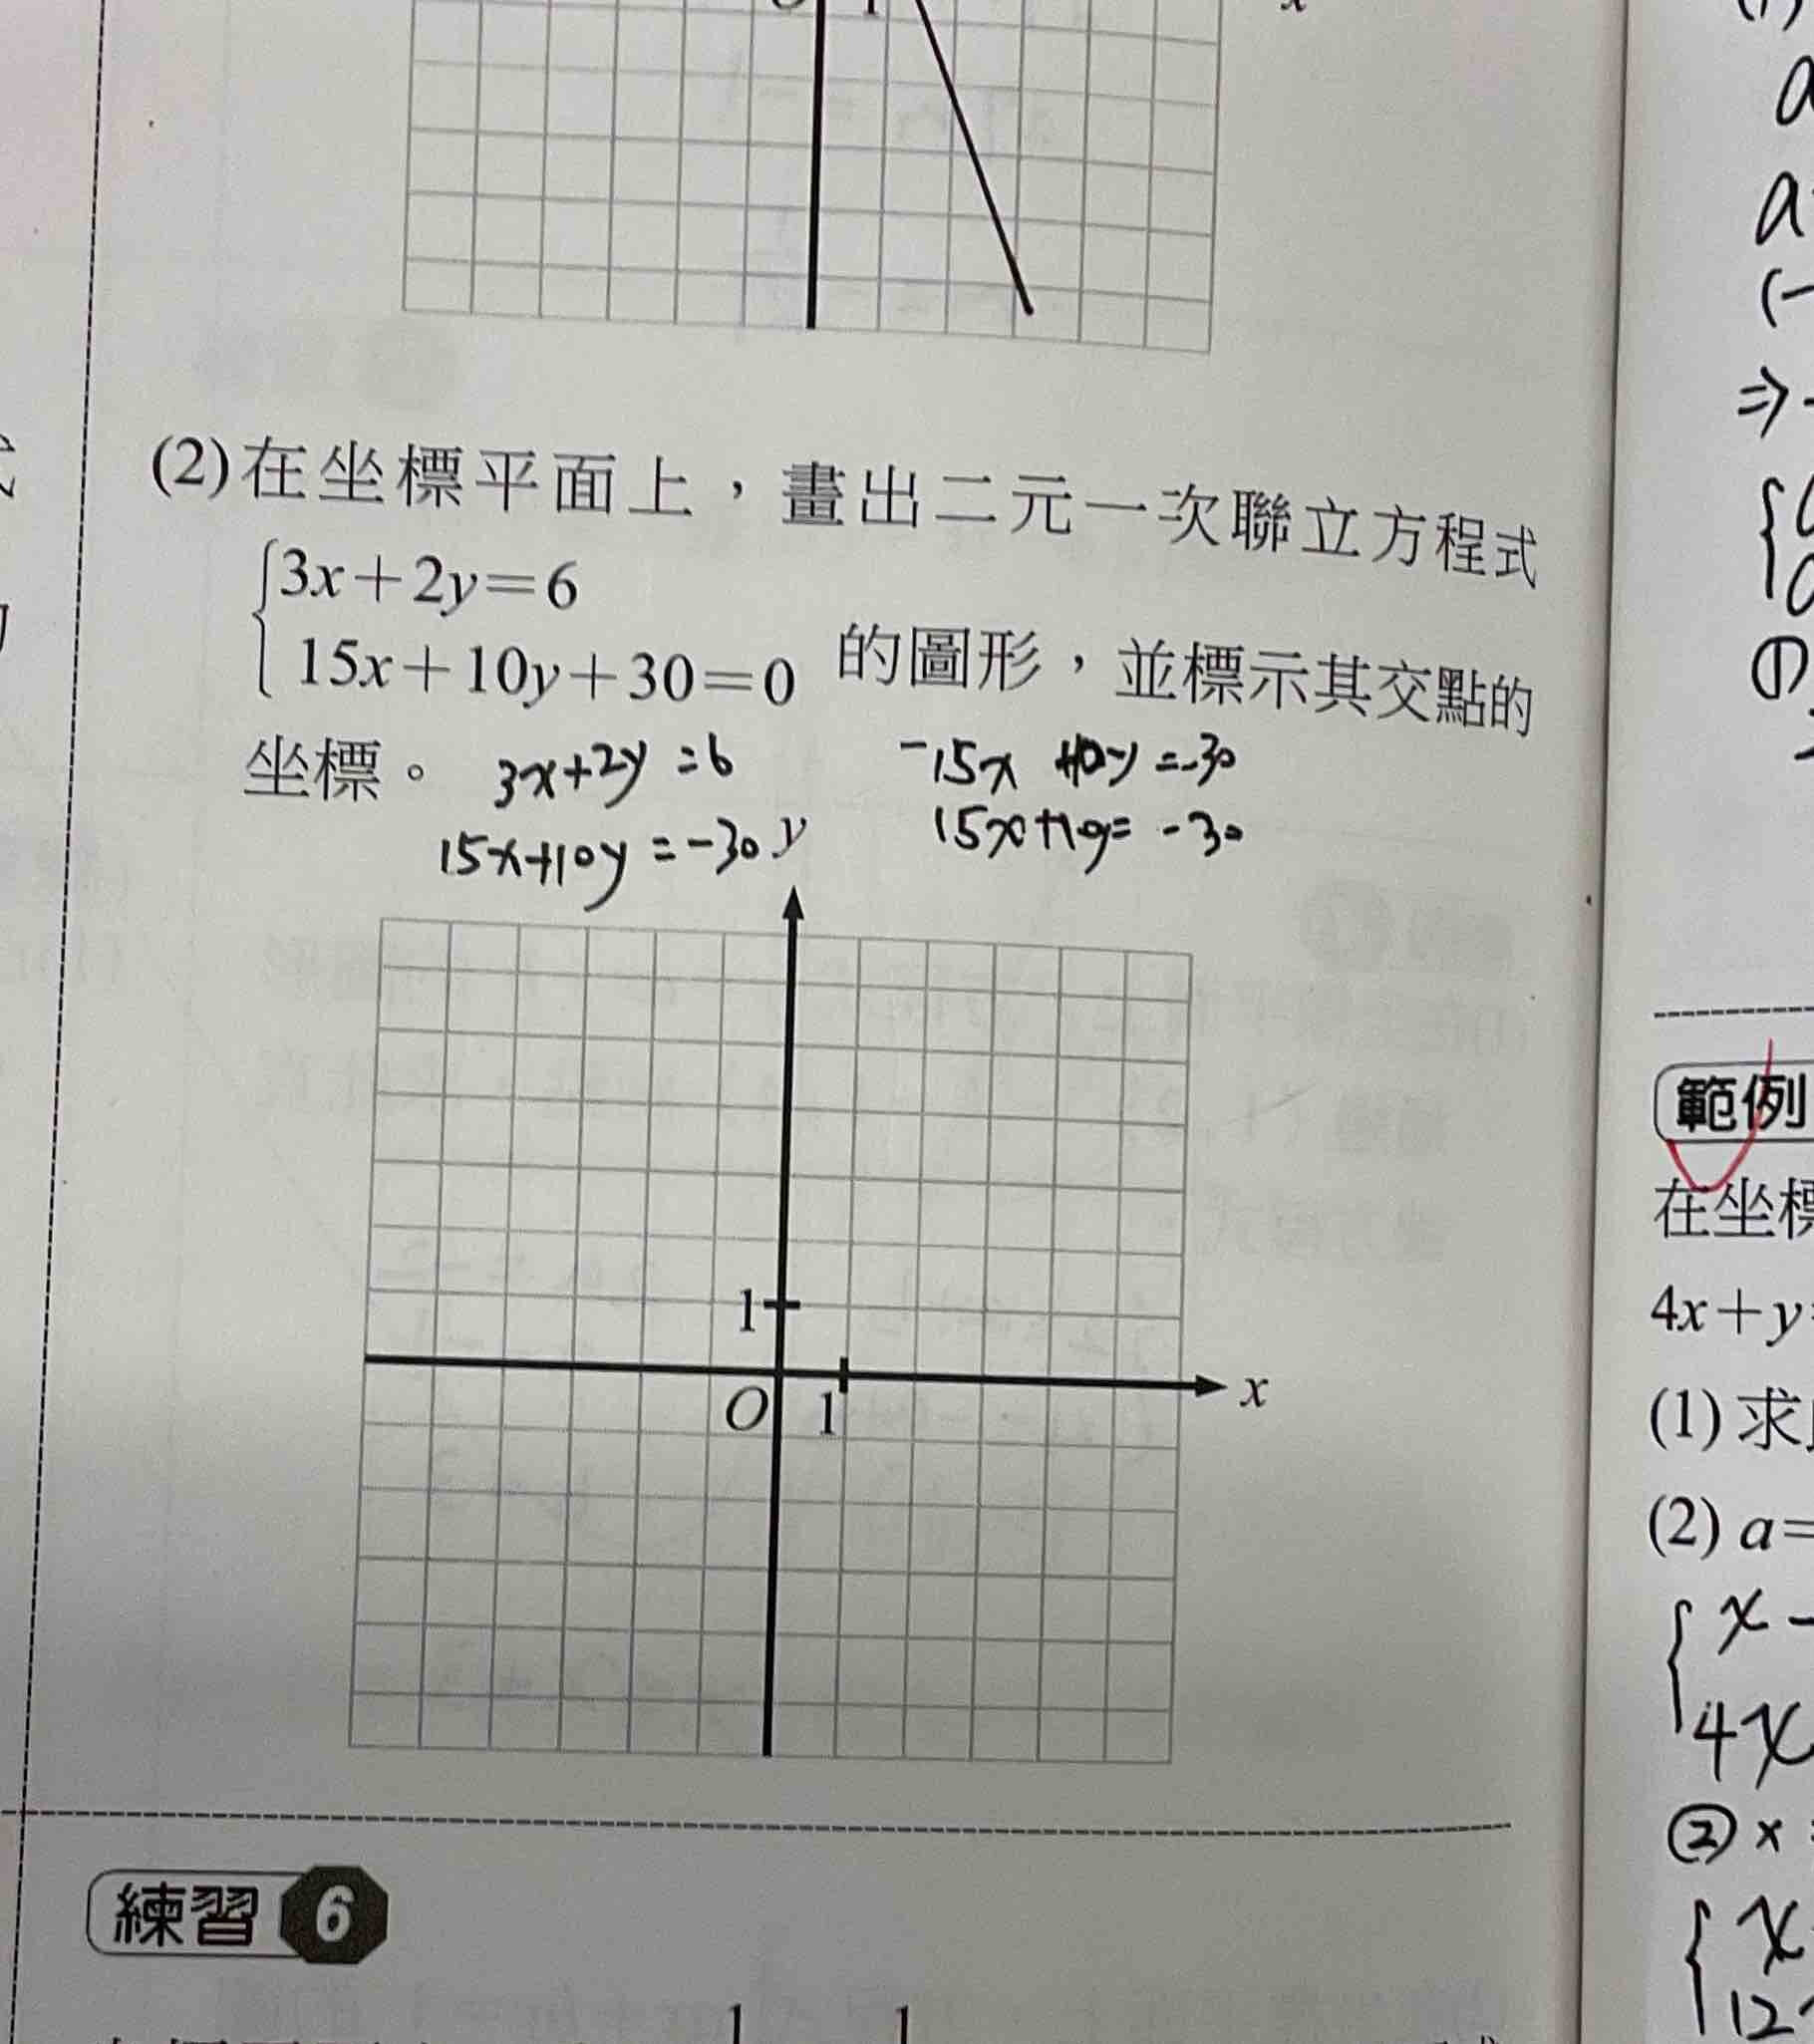 1
x
(2)在坐標平面上，畫出二元一次聯立方程式
3x+2y=6
15x+10y+30=0 的圖形，並標示其交點的
坐標。 3x+2y=6 -15x +10y=-30
15x+10y=-30 15x+10y=-30
y
1
O 1 x
練習 6
1 1
(1)
a
a
(-
⇒
①
範例
在坐標
4x+y
(1)求
(2) a=
x-
4x
② x
x
12